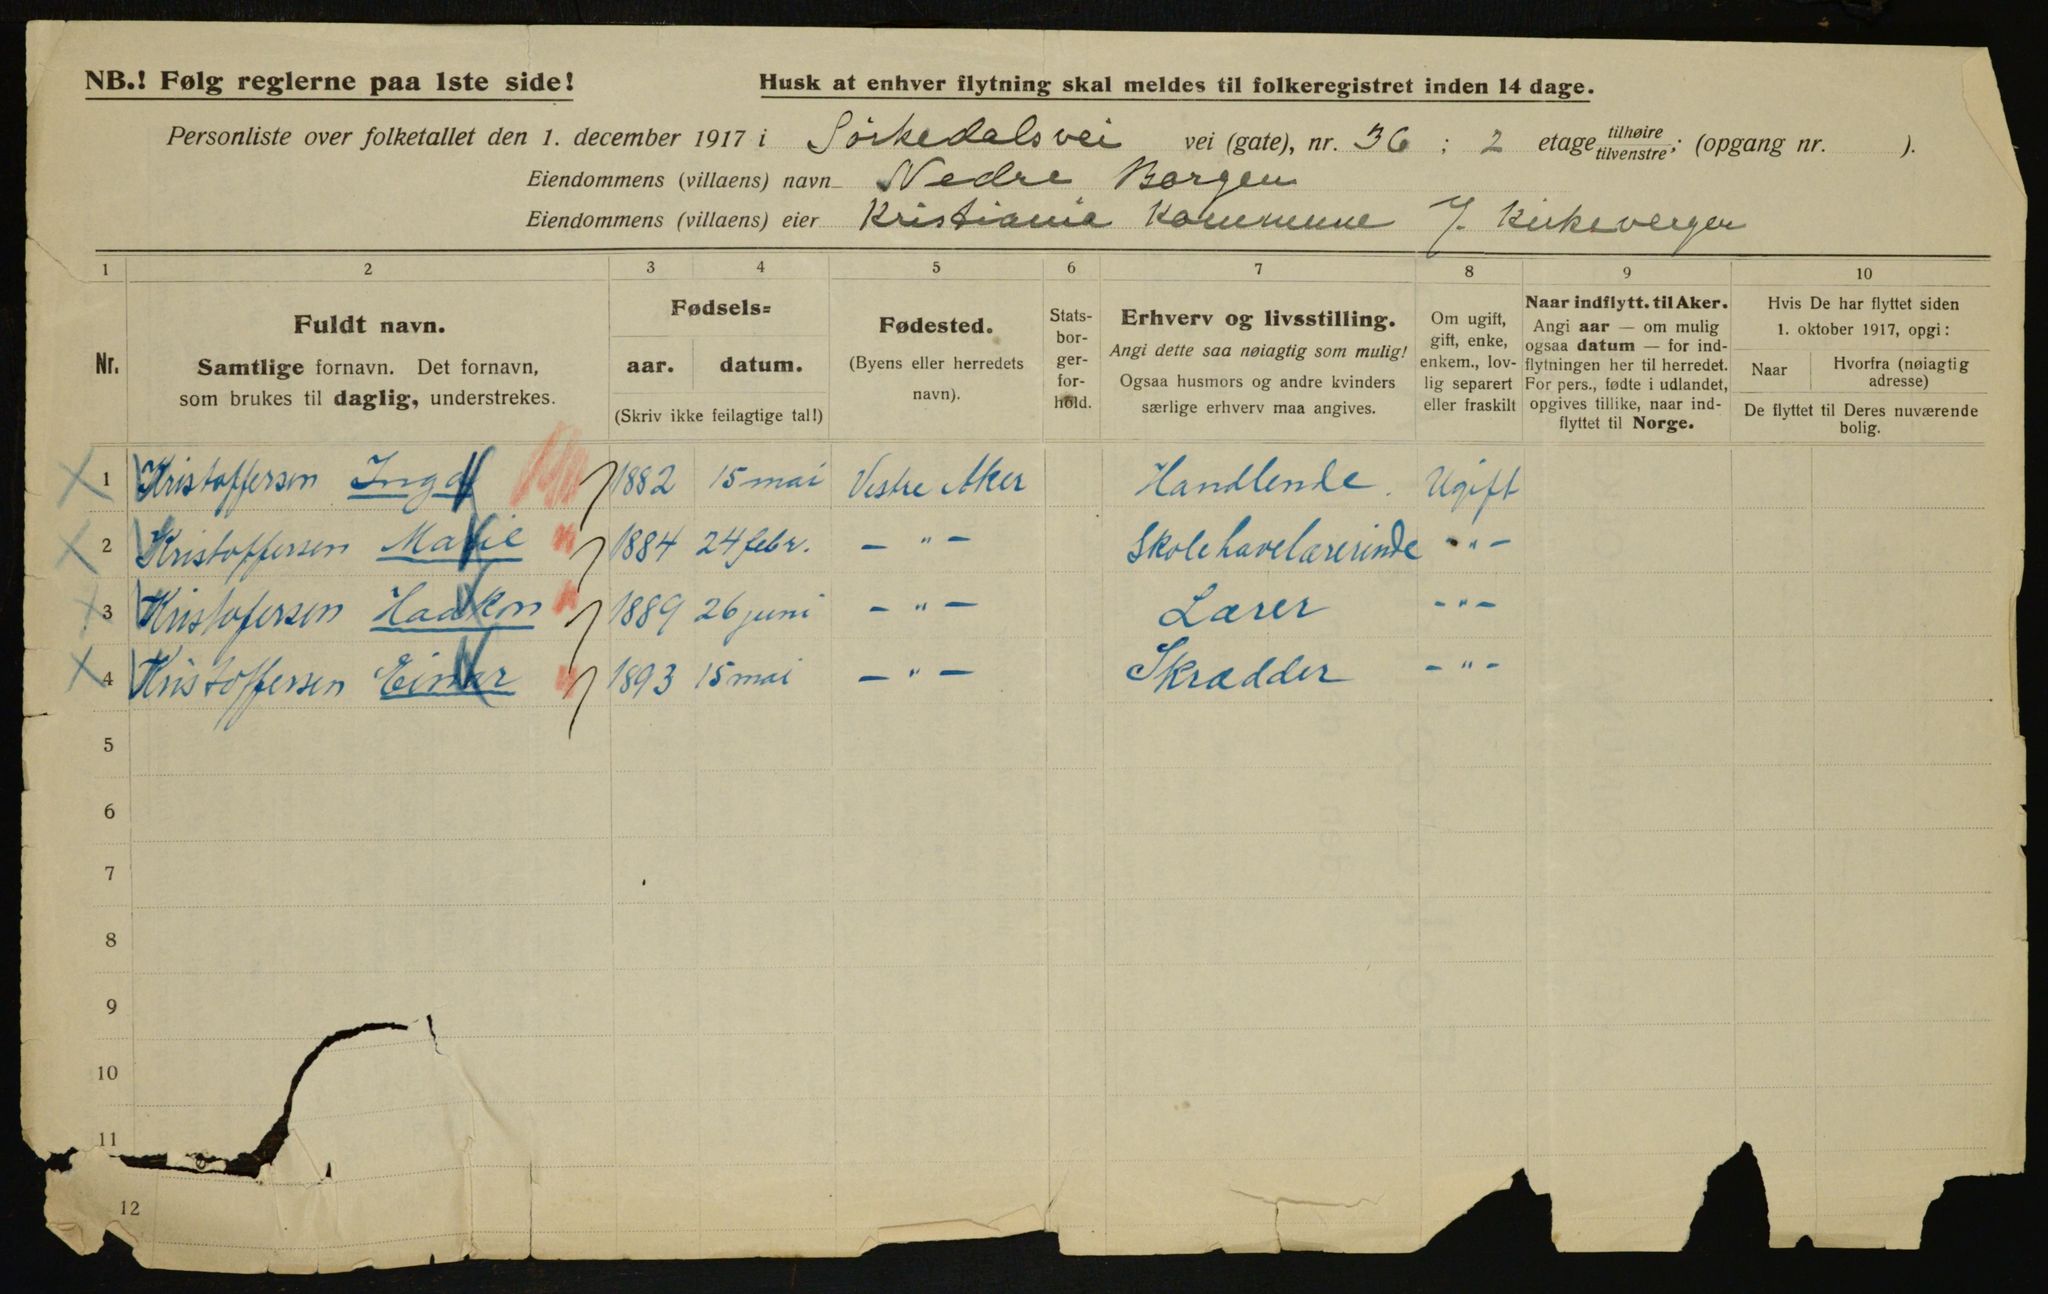 NB.! Følg reglerne paa 1ste side!
Husk at enhver flytning skal meldes til folkeregistret inden 14 dage.
Personliste over folketallet den 1. december 1917 i Sörkedalsvei vei (gate), nr. 36 ; 2 etage tilhøire tilvenstre ; (opgang nr. ).
Eiendommens (villaens) navn Nedre Borgen
Eiendommens (villaens) eier Kristiania Kommune J. Kirkeverger
1 2 3 4 5 6 7 8 9 10
Nr.
Fuldt navn.
Samtlige fornavn. Det fornavn,
som brukes til daglig, understrekes.
Fødsels=
aar. datum.
(Skriv ikke feilagtige tal!)
Fødested.
(Byens eller herredets
navn).
Stats-
bor-
ger-
for-
hold.
Erhverv og livsstilling.
Angi dette saa nøiagtig som mulig!
Ogsaa husmors og andre kvinders
særlige erhverv maa angives.
Om ugift,
gift, enke,
enkem., lov-
lig separert
eller fraskilt
Naar indflytt. til Aker.
Angi aar — om mulig
ogsaa datum — for ind-
flytningen her til herredet.
For pers., fødte i udlandet,
opgives tillike, naar ind-
flyttet til Norge.
Hvis De har flyttet siden
1. oktober 1917, opgi:
Naar
Hvorfra (nøiagtig
adresse)
De flyttet til Deres nuværende
bolig.
1 Kristoffersen Inga 1882 15 mai Vestre Aker Handlende. Ugift
2 Kristoffersen Marie 1884 24 febr. — " — Skolehavelærerinde - " -
3 Kristofersen Haakon 1889 26 juni — " — Lærer - " -
4 Kristoffersen Einar 1893 15 mai — " — Skrædder - " -
5
6
7
8
9
10
11
12